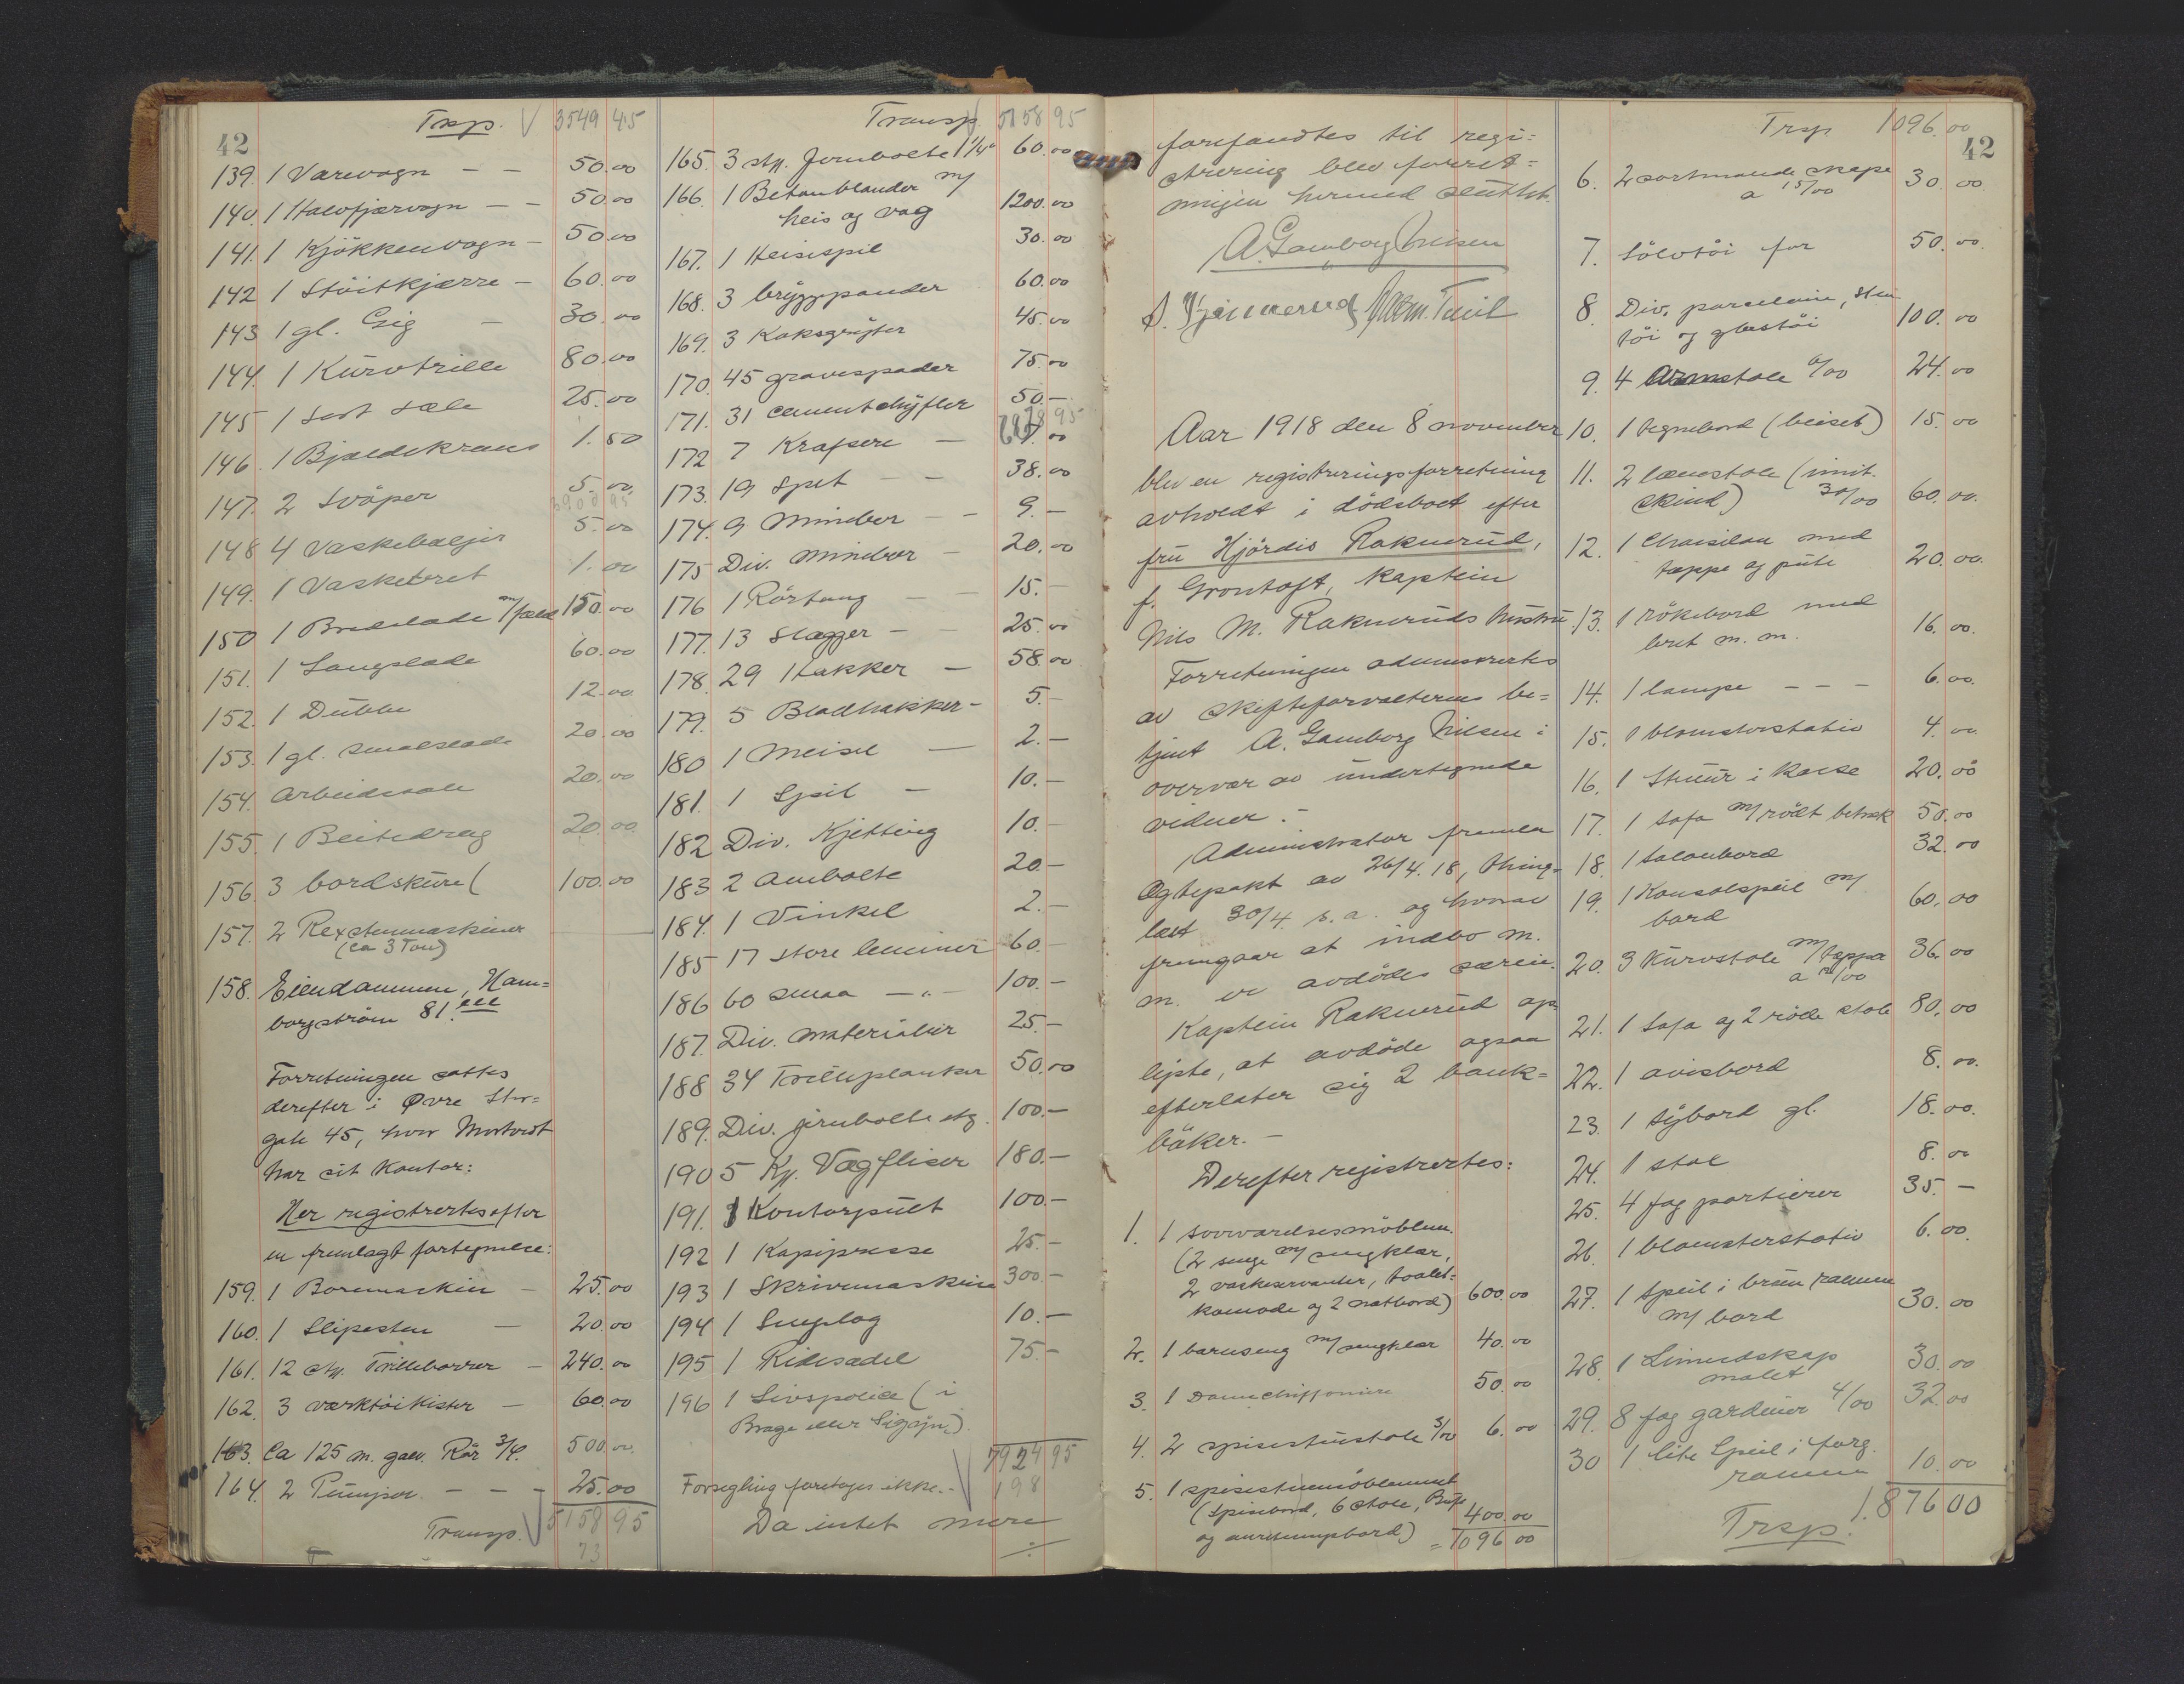 42
Trsp. V 3549 45
139. 1 Varevogn - - 50.00
140. 1 Halvfjærvogn - - 50.00
141. 1 Kjökkenvogn - 50.00
142 1 Stöitkjærre - 60.00
143 1 gl. Gig - 30.00
144. 1 Kurvtrille 80.00
145 1 sort sæle 25.00
146. 1 Bjældekrans 1.50
147. 2 Svöper 5.00
3900 95
148 4 Vaskebaljer 5.00
149. 1 Vaskebret 1.00
150 1 Bredslade m/fæld 150.00
151. 1 Langslade 60.00
152. 1 Dubbe 12.00
153. 1 gl. smalslade 20.00
154. Arbeidssale 20.00
155. 1 Beitedrag 20.00
156. 3 bordskure ( 100.00
157. 2 Rexstenmaskiner
(ca 3 Ton)
158. Eiendommen, Ham=
borgström 81.
Forretningen sattes
derefter i Øvre Stor=
gate 45, hvor
har sit Kontor:
Her registrertes efter
en fremlagt fortegnelse:
159. 1 Boremaskin - 25.00
160. 1 Slipesten - 20.00
161. 12 stk. Trillebörrer - 240.00
162. 3 værktöikister - 60.00
163. Ca 125 m. galv. Rör 3/4. 500.00
164. 2 Pumper - - - 25.00
Transp. V 5158 95
73
Transp V 5158 95
165. 3 stk. Jernbolte 1 1/4" 60.00
166. 1 Betonblander m/
heis og vog 1200.00
167. 1 Heisespil 30.00
168. 3 bryggepander 60.00
169. 3 Koksgryter 45.00
170. 45 gravespader 75.00
171. 31 cementskyfler 50.-
172 7 Krafsere -
173. 19 Spet - - 38.00
174. 9 Minebor - - 9.-
175 Div. Minebor - 20.00
176 1 Rörtang - - 15.-
177. 13 Slegger - - 25.00
178. 29 Hakker - 58.00
179. 5 Bladhakker - 5.-
180 1 Meisel - 2.-
181. 1 Spil - 10.-
182 Div. Kjetting 10.-
183 2 Ambolte 20.-
184. 1 Vinkel 2.-
185 17 store lemmer 60.-
186 60 smaa -"- 100.-
187. Div. materialer 25.-
188 34 Trilleplanker 50.00
189. Div. jernbolte etc. 100.-
190 5 Kj. Vægfliser 180.-
191. 1 Kontorpult 100.-
192 1 Kopipresse 25.-
193 1 Skrivemaskine 300.-
194 1 Sneplog 10.-
195 1 Ridesadel 75.-
196 1 Livspolice (i
Brage eller Sigyn).
7924 95
Forsegling foretoges ikke.- V 198
Da intet mere
÷
forefandtes til regi=
strering blev forret=
ningen hermed sluttet.
A. Gamborg Nilsen
Aar 1918 den 8 november
blev en registreringsforretning
avholdt i dödsboet efter
fru Hjördis Raknerud,
f. Grontoft, kaptein
Nils M. Rakneruds hustru.
Forretningen administrertes
av skifteforvalterens be=
tjent A. Gamborg Nilsen i
overvær av undertegnede
vidner.-
Administrator fremla
Egtepakt av 26/4. 18, thing=
læst 30/4. s.a. og hvorav
fremgaar at indbo m.
m. er avdödes særeie.
Kaptein Raknerud op=
lyste, at avdöde ogsaa
efterlater sig 2 bank=
böker.-
Derefter registrertes:
1. 1 soveværelsesmöblem.
(2 senge m/ sengklær,
2 vaskeservanter, toalet=
komode og 2 natbord) 600.00
2. 1 barneseng m/sengklær 40.00
3. 1 Damechiffoniere 50.00
4. 2 spisestuestole 3/00 6.00
5. 1 spisestuemöblement
(Spisebord, 6 stole, Buffe
og anretningsbord) 400.00
= 1096 00
Trsp 1096.00
42
6. 2 sortmalede skape
a 15/00 30.00
7. Sölvtöi for 50.00
8. Div. porcelain, sten
töi og glastöi 100.00
9. 4 Armstole 6/00 24.00
10. 1 tegnebord (beiset) 15.00
11. 2 lænestole (imit.
skind) 30/00 60.00.
12. 1 Chaiselon med
teppe og pute 20.00.
13. 1 rökebord med
bret m.m. 16.00.
14. 1 lampe - - - 6.00.
15. 1 blomsterstativ 4.00
16. 1 Stuur i kasse 20.00
17. 1 sofa m/rödt betræk 50.00
18. 1 salonbord 32.00
19. 1 Konsolspeil m/
bord 60.00
20. 3 Kurvstole m/teppe
a 12/00 36.00
21. 1 Sofa og 2 röde stole 80.00
22. 1 avisbord 8.00.
23. 1 sybord gl. 18.00.
24. 1 stol 8.00
25. 4 fag portierer 35.-
26. 1 blomsterstativ 6.00.
27. 1 Speil i brun ramme
m/ bord 30.00
28. 1 Linnedskap
malet 30.00
29. 8 fag gardiner 4/00 32.00
30 1 lite Speil i forg.
ramme 10.00
1.876 00
Trsp.